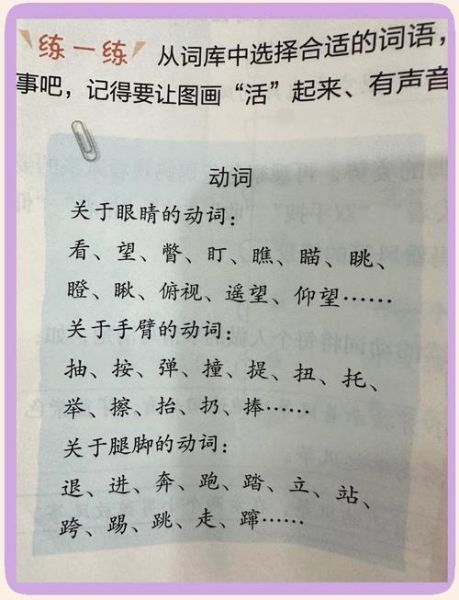 练一练 从词库中选择合适的词语，
事吧，记得要让图画“活”起来、有声音
动词
关于眼睛的动词：
看、望、瞥、盯、瞧、瞄、眺、
瞪、瞅、俯视、遥望、仰望……
关于手臂的动词：
抽、按、弹、撞、提、扭、托、
举、擦、抬、扔、捧……
关于腿脚的动词：
退、进、奔、跑、踏、立、站、
跨、踢、跳、走、蹿……